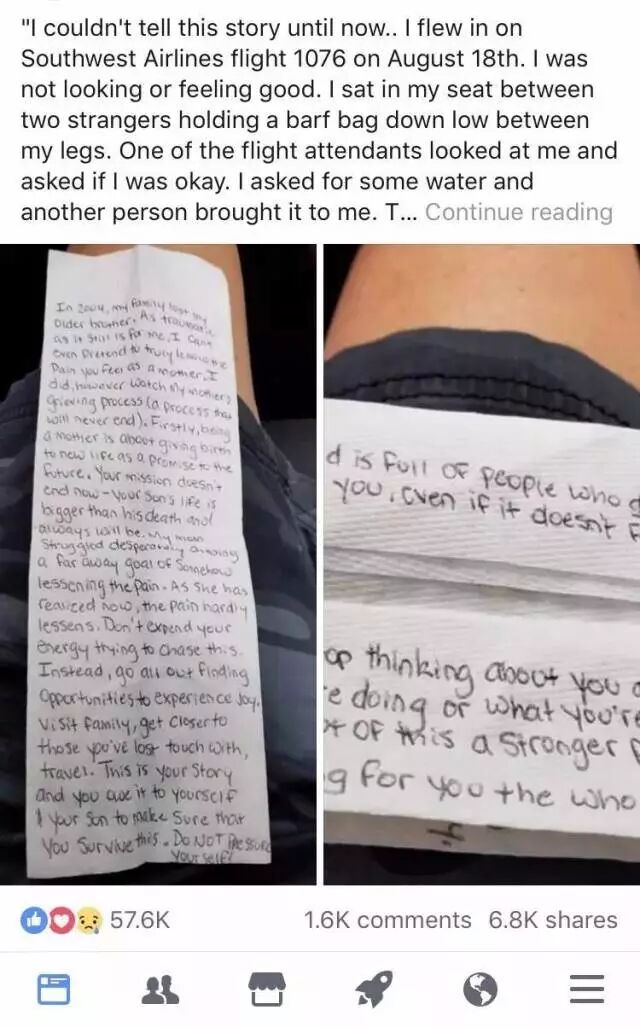 "I couldn't tell this story until now.. I flew in on
Southwest Airlines flight 1076 on August 18th. I was
not looking or feeling good. I sat in my seat between
two strangers holding a barf bag down low between
my legs. One of the flight attendants looked at me and
asked if I was okay. I asked for some water and
another person brought it to me. T... Continue reading
In 2004, my family lost my
Older brother. As traumatic
as it still is for me, I can't
even pretend to truly know the
Pain you feel as a mother. I
did, however watch my mother's
grieving process (a process that
will never end). Firstly, being
a mother is about giving birth
to new life as a promise to the
future. Your mission doesn't
end now - your son's life is
bigger than his death and
always will be. My mom
struggled desperately
a far away goal of somehow
lessening the pain. As she has
realized now, the pain hardly
lessens. Don't expend your
energy trying to chase this.
Instead, go all out finding
opportunities to experience Joy.
Visit family, get closer to
those you've lost touch with,
travel. This is your story
and you owe it to yourself
& your son to make sure that
you survive this. Do NOT Pressure
yourself!
d is full of people who
you, even if it doesn't f
op thinking about you
e doing or what you're
t of this a stronger
g for you the who
57.6K 1.6K comments 6.8K shares